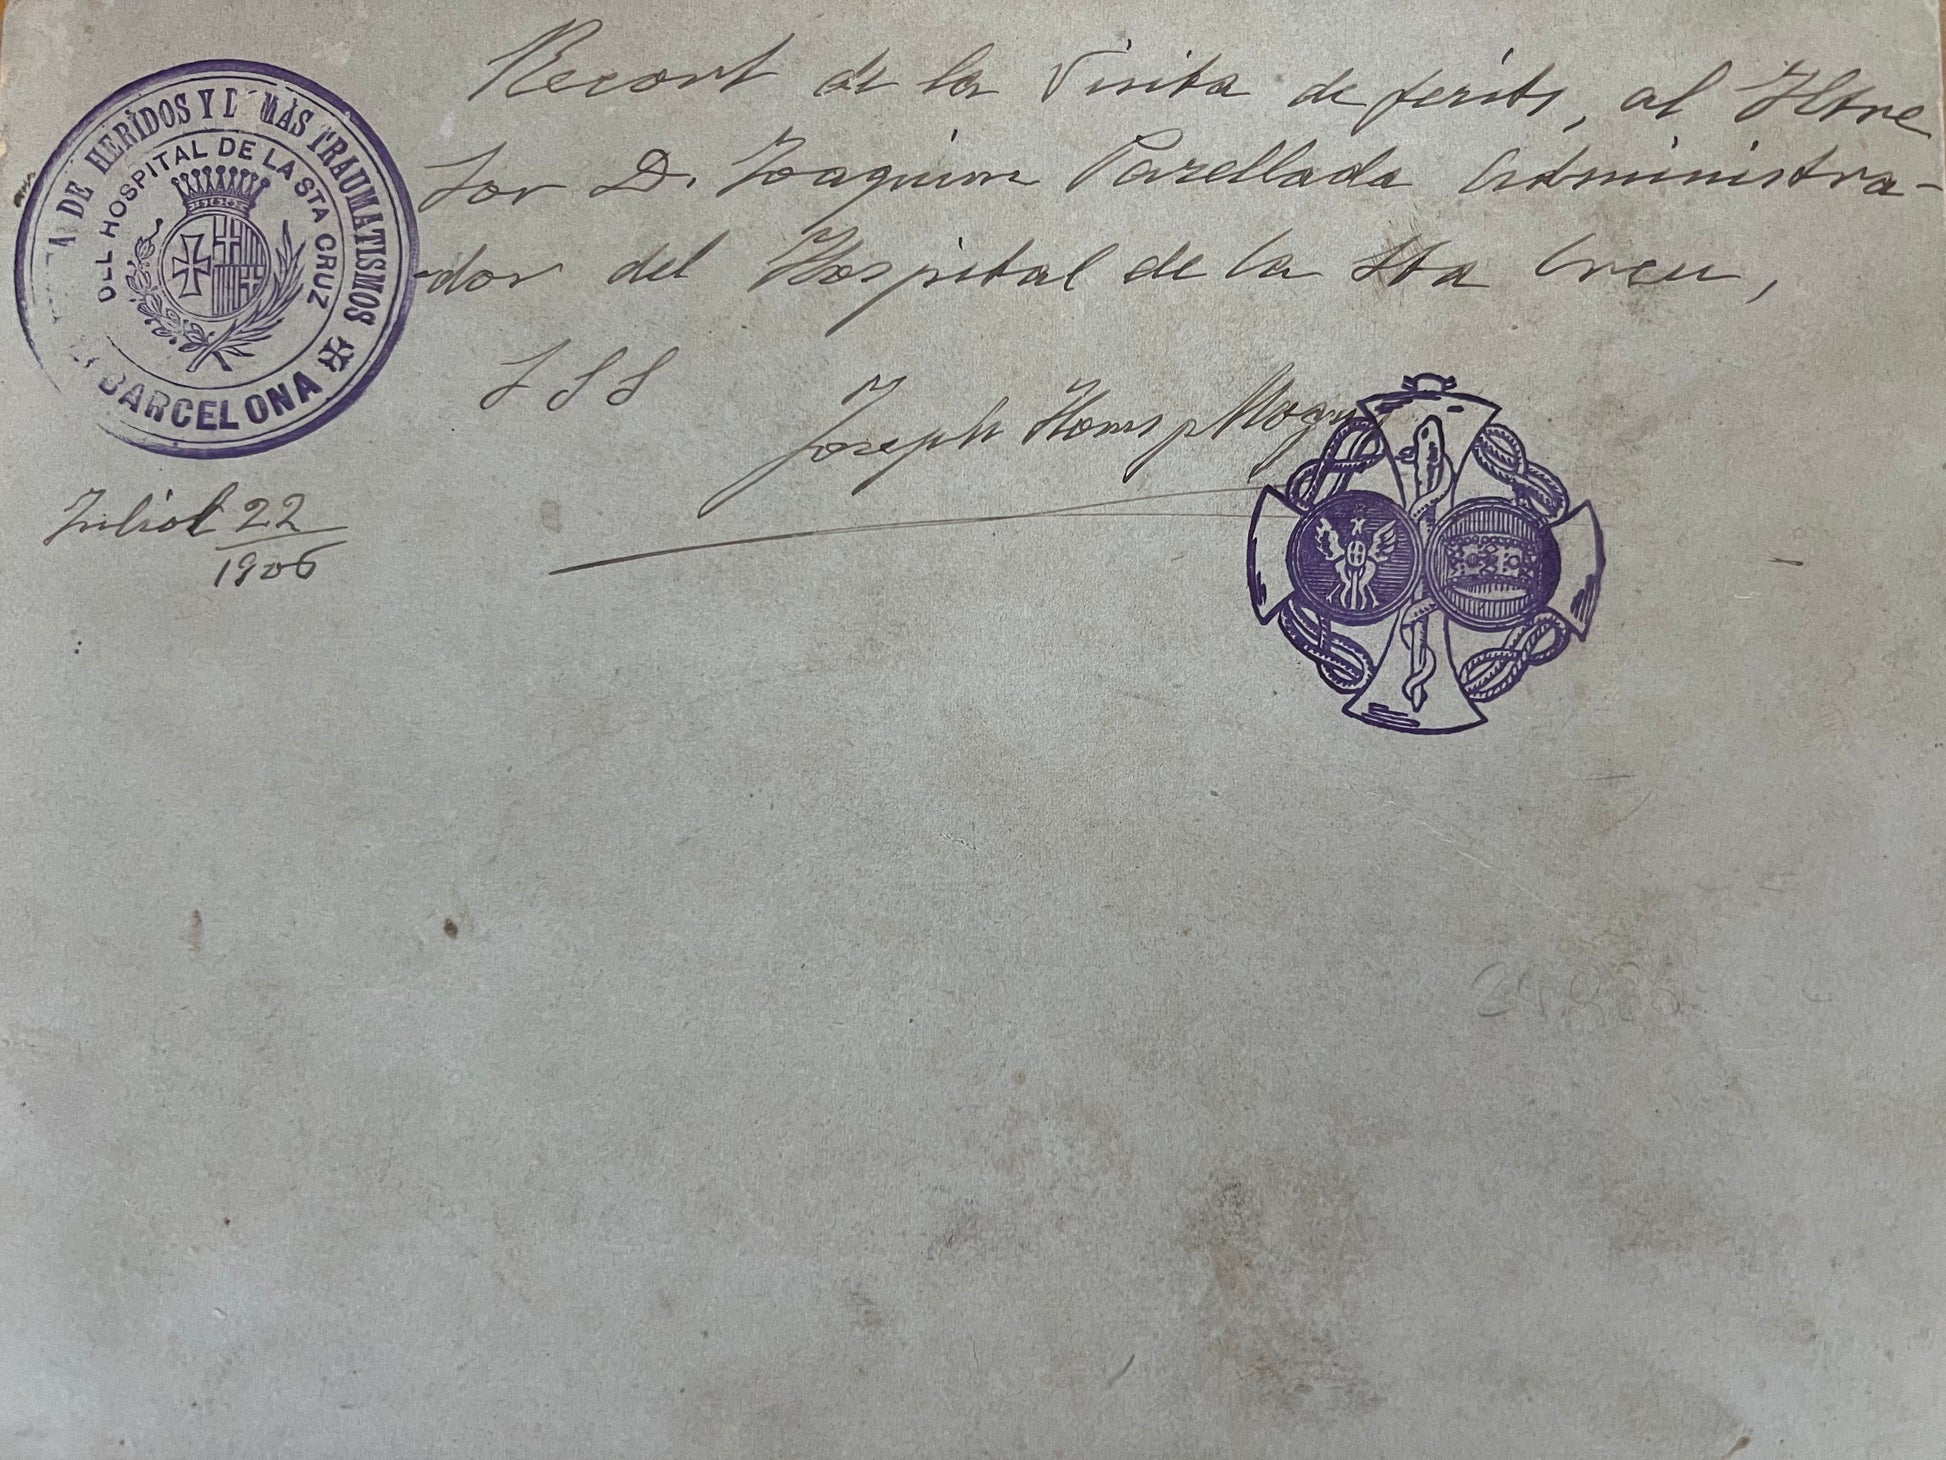 Recort de la Visita de ferits, al Iltre
Sor D. Joaquim Parellada Administra-
-dor del Hospital de la Sta Creu,
S S S
Joseph Homs
Juliol 22
1906
DE HERIDOS Y DEMÁS TRAUMATISMOS
DEL HOSPITAL DE LA STA CRUZ
BARCELONA